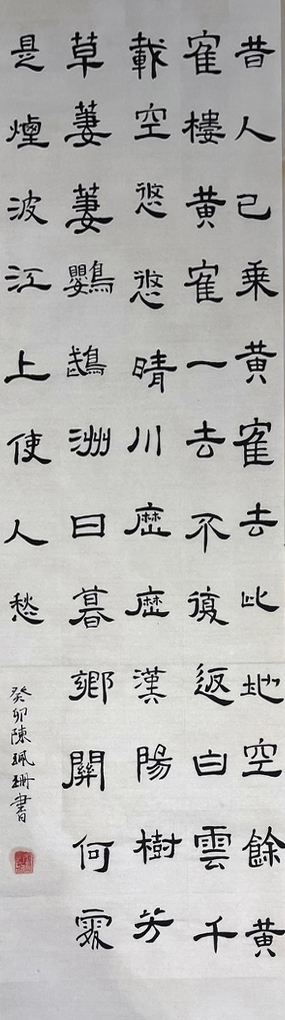 昔人已乘黄寉去此地空餘黄
寉樓黄寉一去不復返白雲千
載空悠悠晴川歷歷漢陽樹芳
草萋萋鸚鵡洲日暮鄉關何處
是煙波江上使人愁
癸卯陳珮珊書